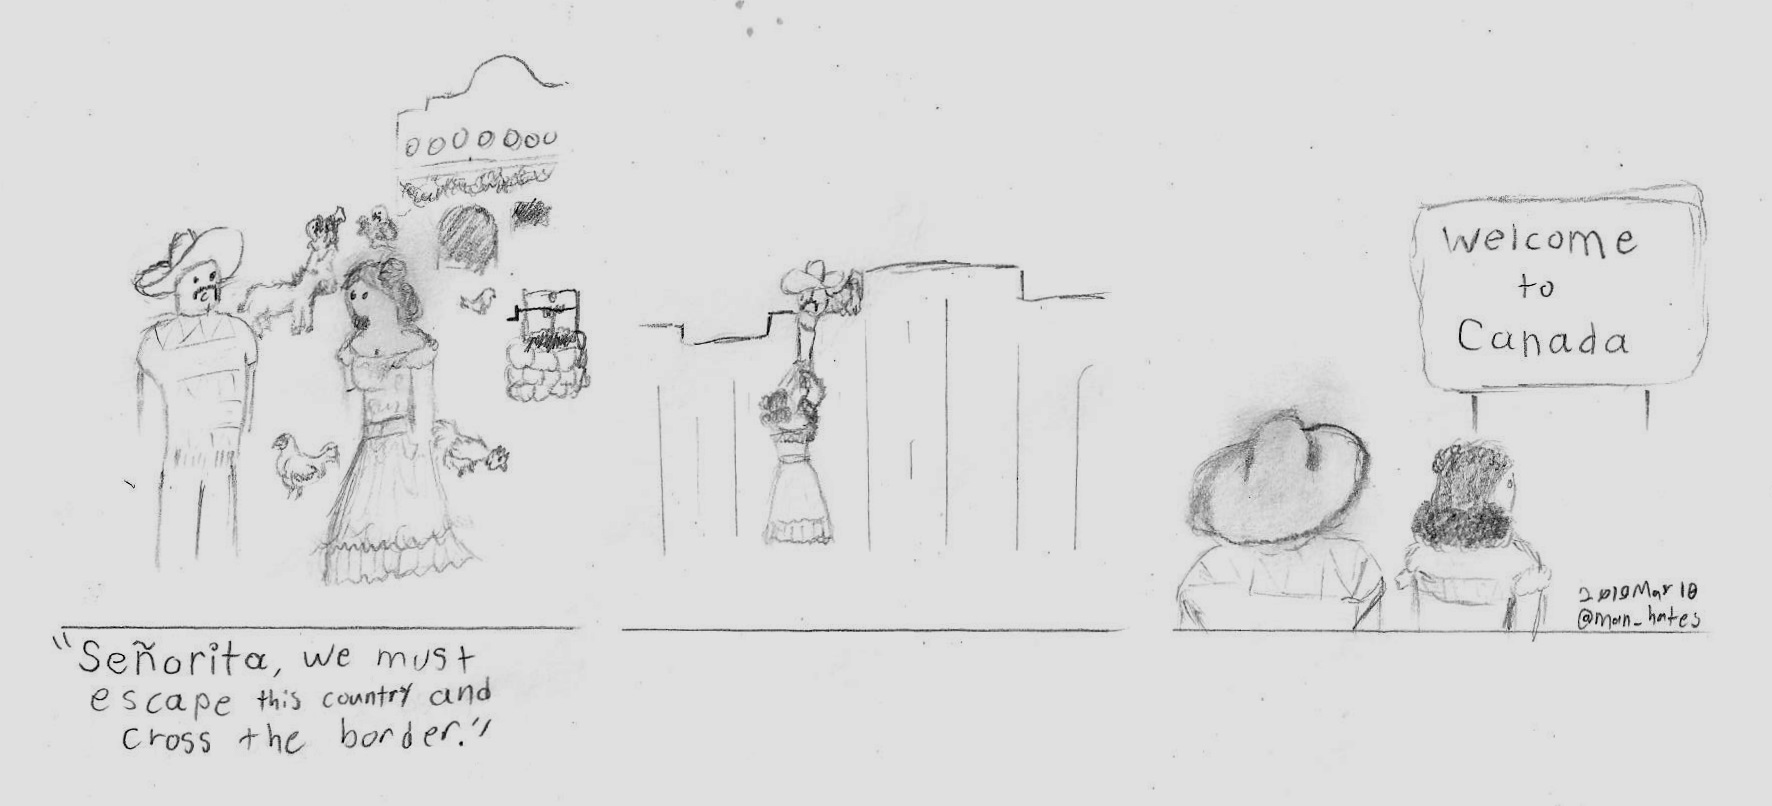 "Señorita, we must
escape this country and
cross the border."
Welcome
to
Canada
2019Mar18
@man_hates